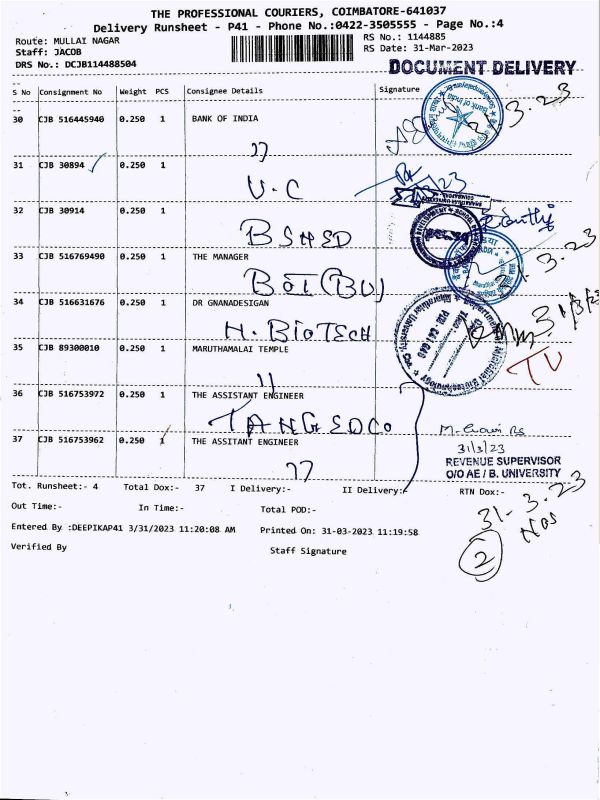 THE PROFESSIONAL COURIERS, COIMBATORE-641037
Delivery Runsheet - P41 - Phone No.:0422-3505555 - Page No.:4
Route: MULLAI NAGAR
Staff: JACOB
DRS No.: DCJB114488504
RS No.: 1144885
RS Date: 31-Mar-2023
DOCUMENT DELIVERY
S No Consignment No Weight PCS Consignee Details Signature
30 CJB 516445940 0.250 1 BANK OF INDIA
31.3.23
31 CJB 30894 0.250 1
V.C
32 CJB 30914 0.250 1
BSMED
33 CJB 516769490 0.250 1 THE MANAGER
BOI (BU)
34 CJB 516631676 0.250 1 DR GNANADESIGAN
M. BIOTECH
31/3/23
35 CJB 89300010 0.250 1 MARUTHAMALAI TEMPLE
TV
36 CJB 516753972 0.250 1 THE ASSISTANT ENGINEER
TANGEDCO
37 CJB 516753962 0.250 1 THE ASSITANT ENGINEER
31/3/23
REVENUE SUPERVISOR
O/O AE / B. UNIVERSITY
Tot. Runsheet:- 4 Total Dox:- 37 I Delivery:- II Delivery:- RTN Dox:-
Out Time:- In Time:- Total POD:-
31-3-23
Nos
2
Entered By :DEEPIKAP41 3/31/2023 11:20:08 AM Printed On: 31-03-2023 11:19:58
Verified By Staff Signature